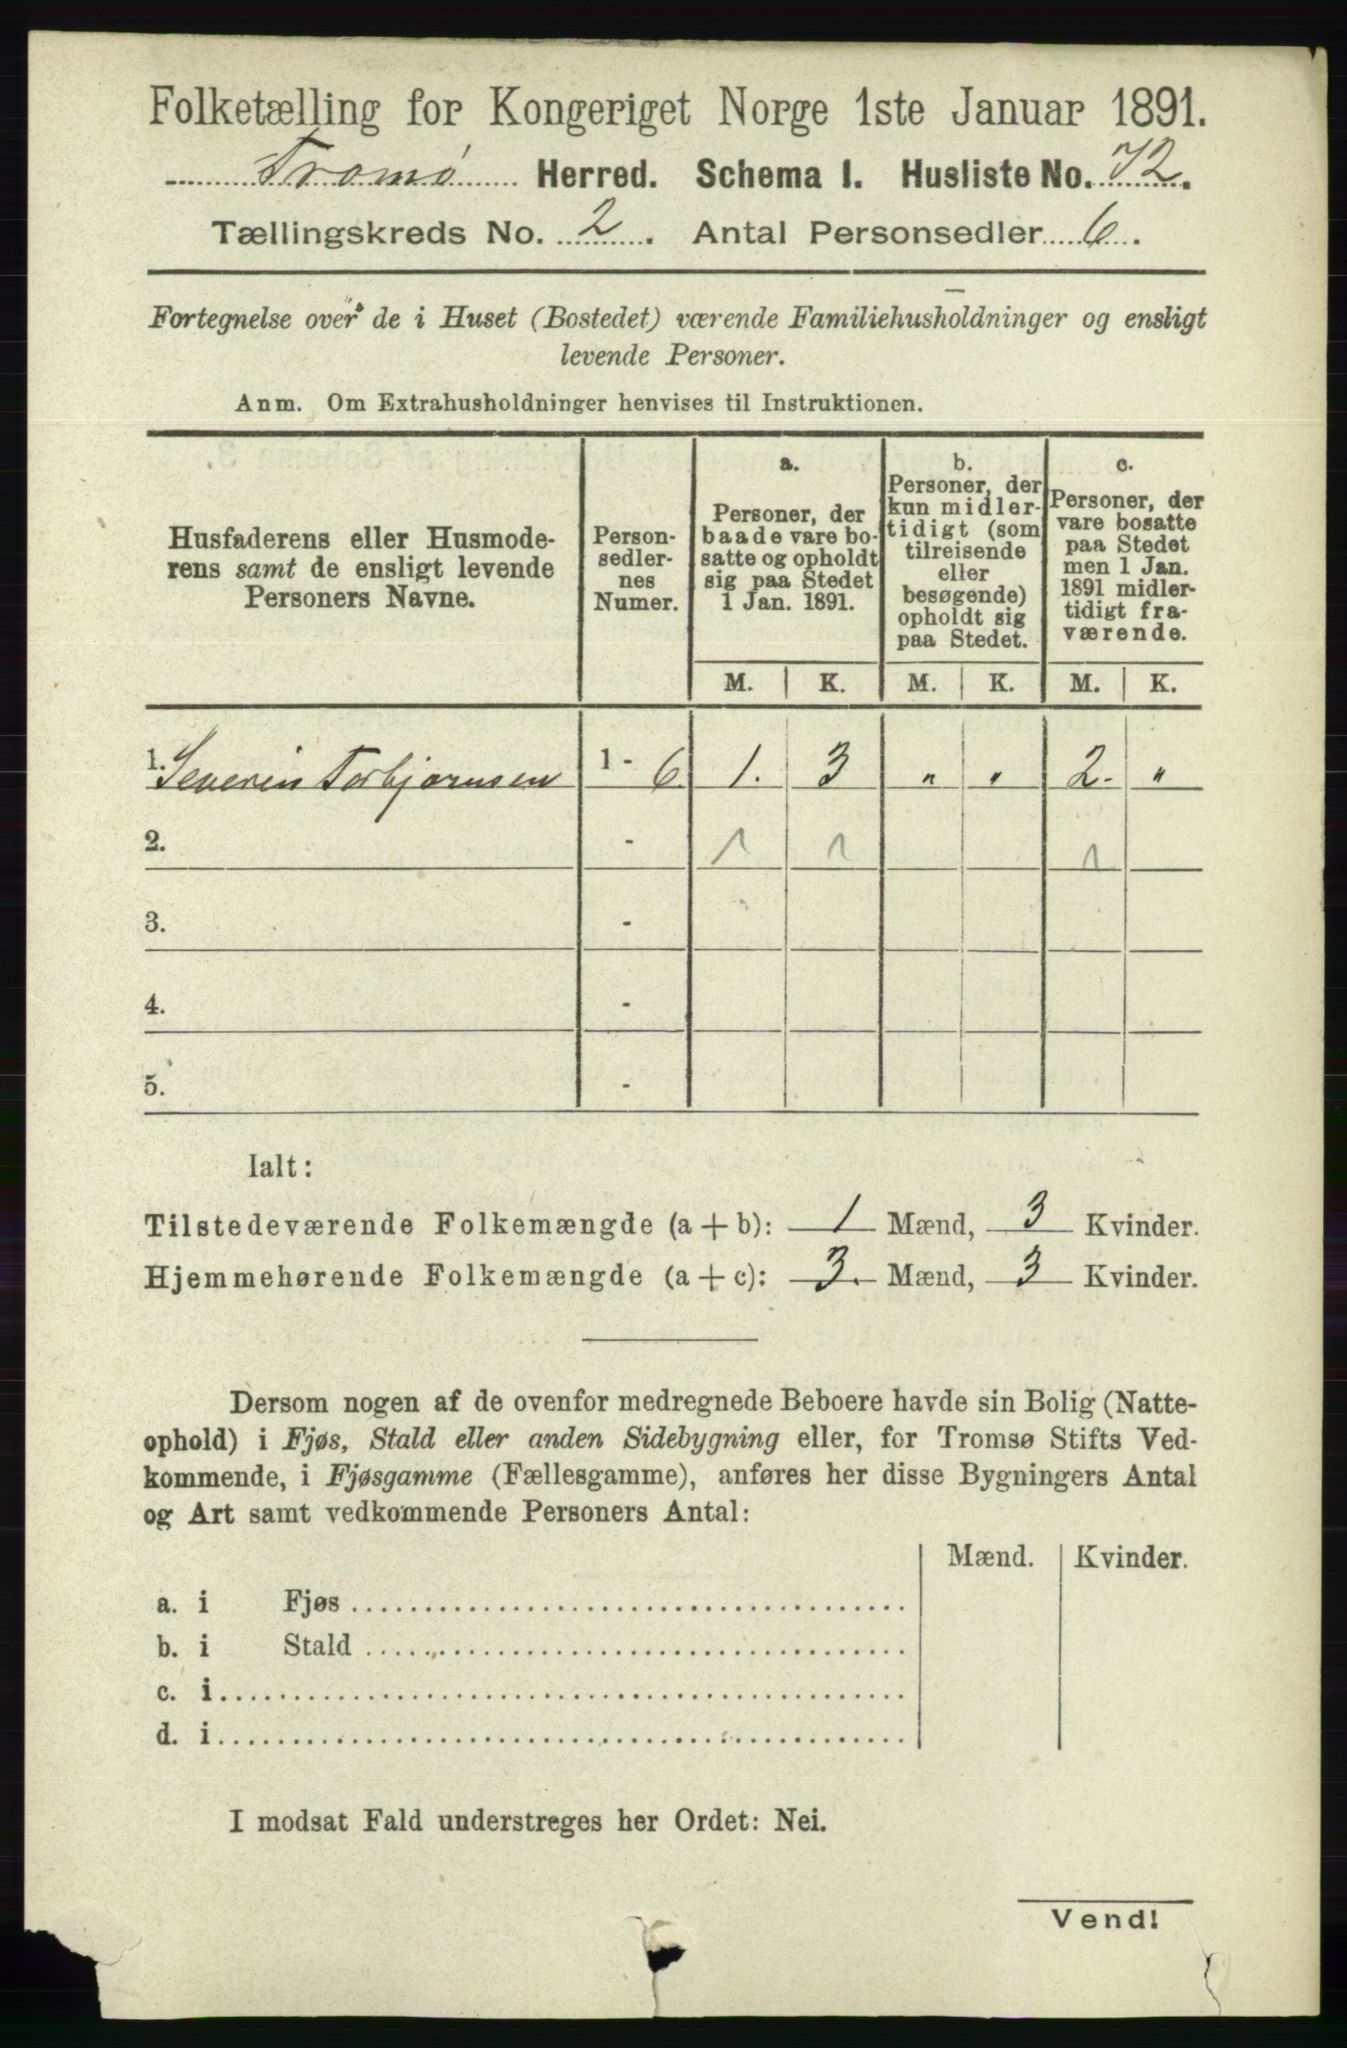 Folketælling for Kongeriget Norge 1ste Januar 1891.
Tromø Herred. Schema I. Husliste No. 72.
Tællingskreds No. 2. Antal Personsedler 6.
Fortegnelse over de i Huset (Bostedet) værende Familiehusholdninger og ensligt
levende Personer.
Anm. Om Extrahusholdninger henvises til Instruktionen.
Husfaderens eller Husmode-
rens samt de ensligt levende
Personers Navne.
Person-
sedler-
nes
Numer.
a.
Personer, der
baade vare bo-
satte og opholdt
sig paa Stedet
1 Jan. 1891.
b.
Personer, der
kun midler-
tidigt (som
tilreisende
eller
besøgende)
opholdt sig
paa Stedet.
c.
Personer, der
vare bosatte
paa Stedet
men 1 Jan.
1891 midler-
tidigt fra-
værende.
M. K. M. K. M. K.
1. Severin Torbjørnsen 1 - 6 1. 3 " " 2. "
2. - 1 1 1
3. -
4. -
5. -
Ialt:
Tilstedeværende Folkemængde (a + b): 1 Mænd, 3 Kvinder.
Hjemmehørende Folkemængde (a + c): 3. Mænd, 3 Kvinder.
Dersom nogen af de ovenfor medregnede Beboere havde sin Bolig (Natte-
ophold) i Fjøs, Stald eller anden Sidebygning eller, for Tromsø Stifts Ved-
kommende, i Fjøsgamme (Fællesgamme), anføres her disse Bygningers Antal
og Art samt vedkommende Personers Antal:
Mænd. Kvinder.
a. i Fjøs
b. i Stald
c. i
d. i
I modsat Fald understreges her Ordet: Nei.
Vend!